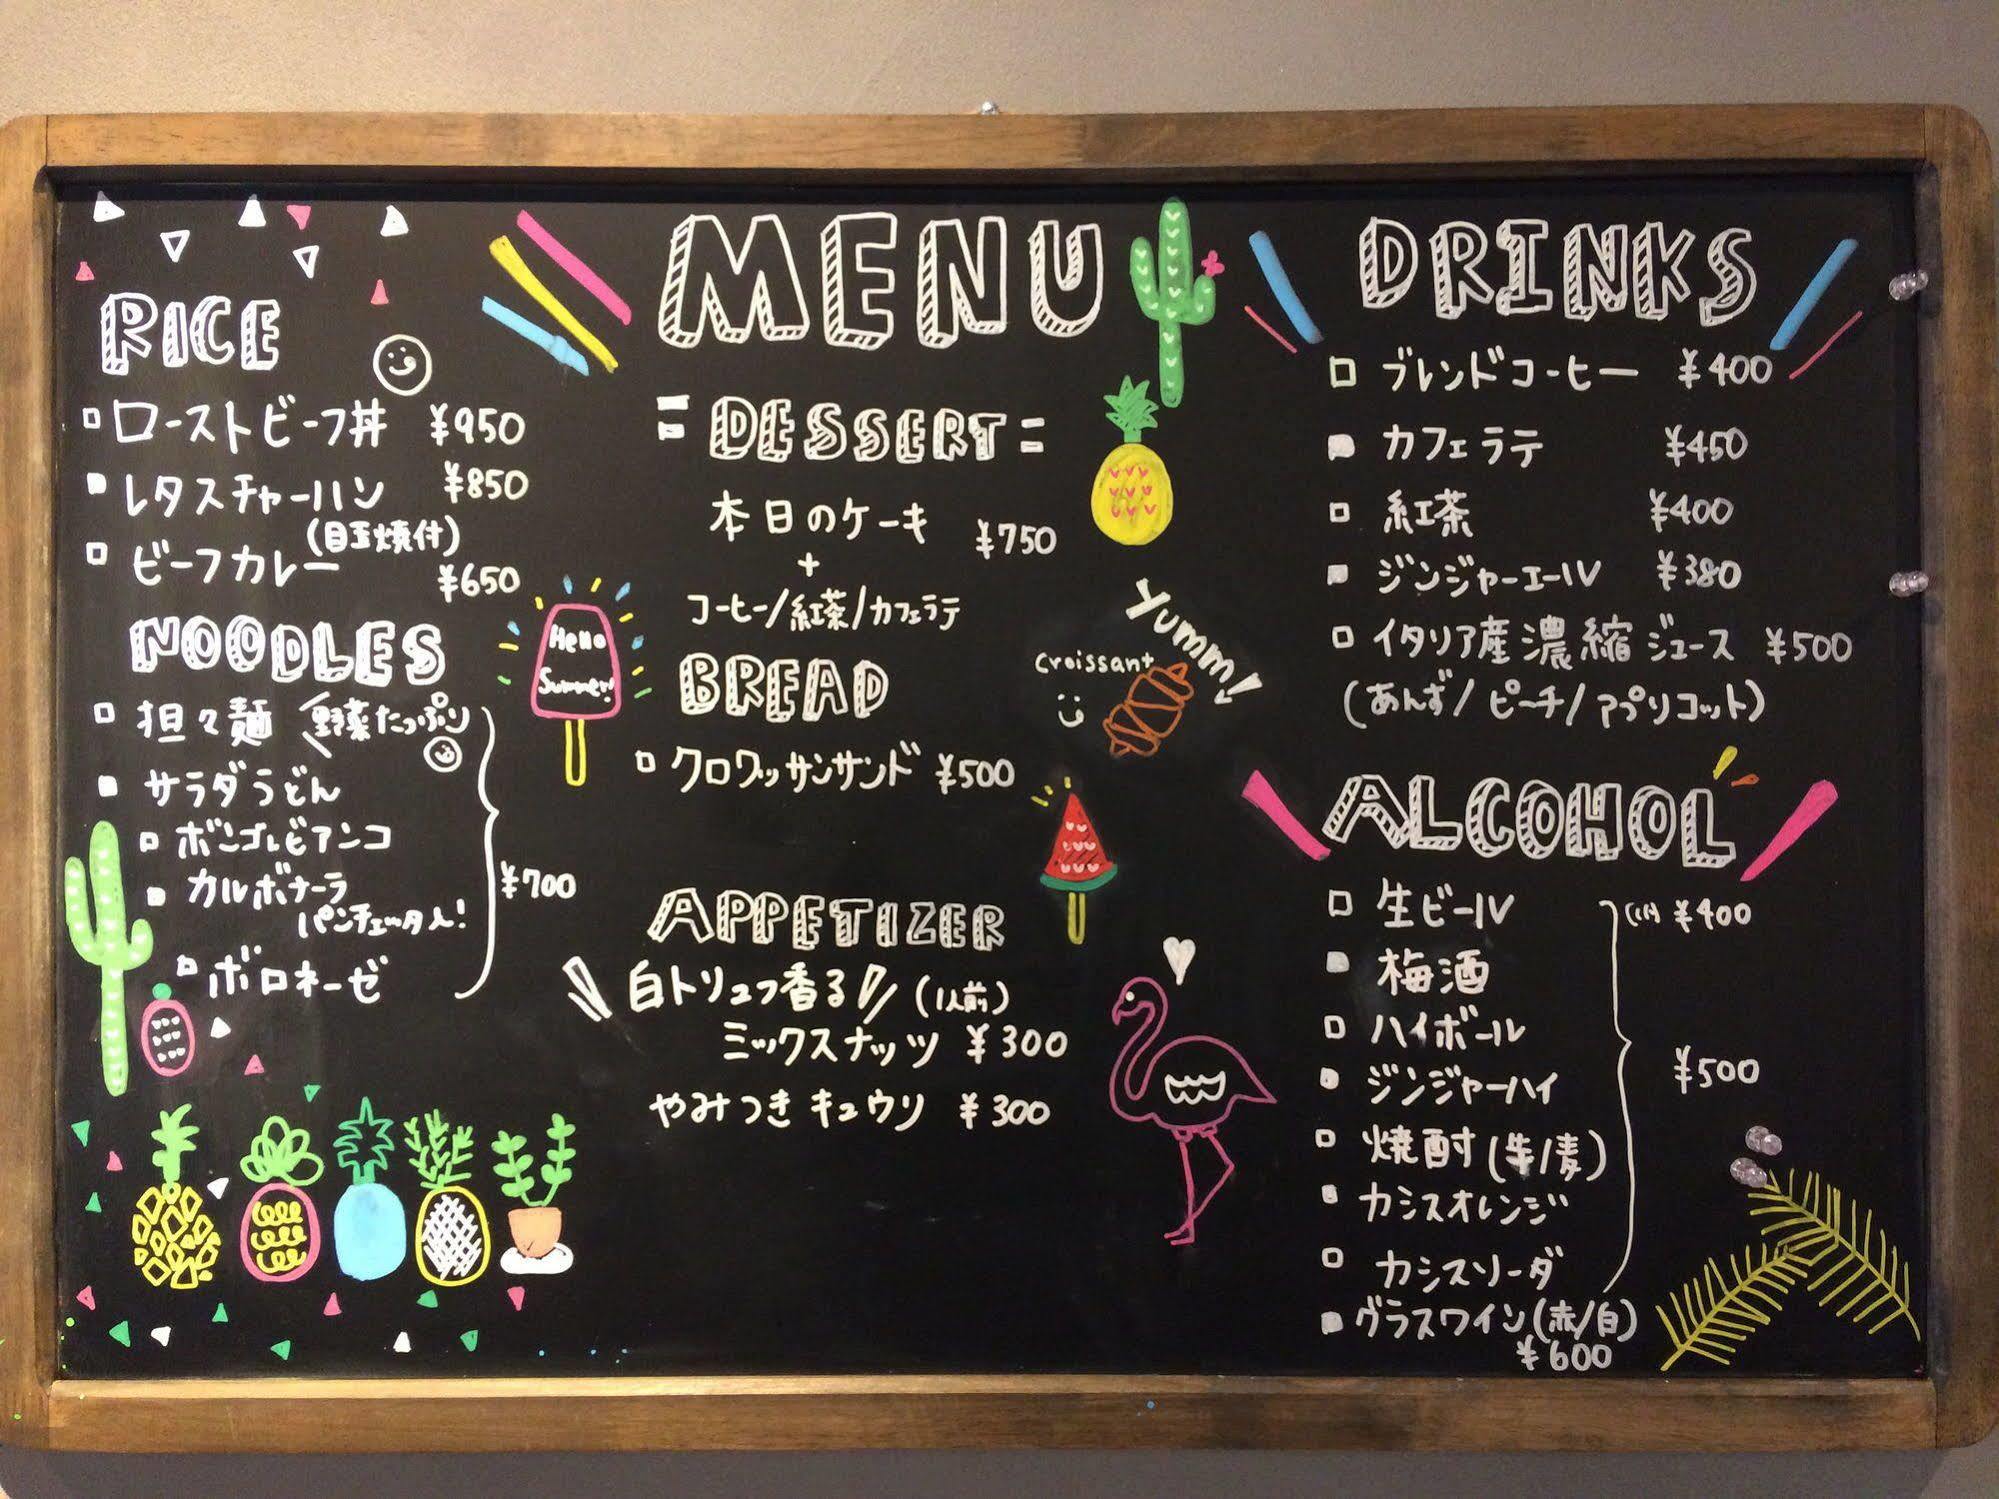 MENU
RICE
ローストビーフ丼 ¥950
レタスチャーハン ¥850
(目玉焼付)
ビーフカレー ¥650
NOODLES
担々麺 野菜たっぷり
サラダうどん
ボンゴレビアンコ
カルボナーラ
パンチェッタ入!
ボロネーゼ
¥700
Hello
Summer!
=DESSERT=
本日のケーキ ¥750
+
コーヒー/紅茶/カフェラテ
BREAD
クロワッサンサンド ¥500
croissant
Yumm!
APPETIZER
白トリュフ香る (1人前)
ミックスナッツ ¥300
やみつきキュウリ ¥300
DRINKS
ブレンドコーヒー ¥400
カフェラテ ¥450
紅茶 ¥400
ジンジャーエール ¥380
イタリア産濃縮ジュース ¥500
(あんず/ピーチ/アプリコット)
ALCOHOL
生ビール ¥400
梅酒
ハイボール
ジンジャーハイ
¥500
焼酎(芋/麦)
カシスオレンジ
カシスソーダ
グラスワイン(赤/白)
¥600